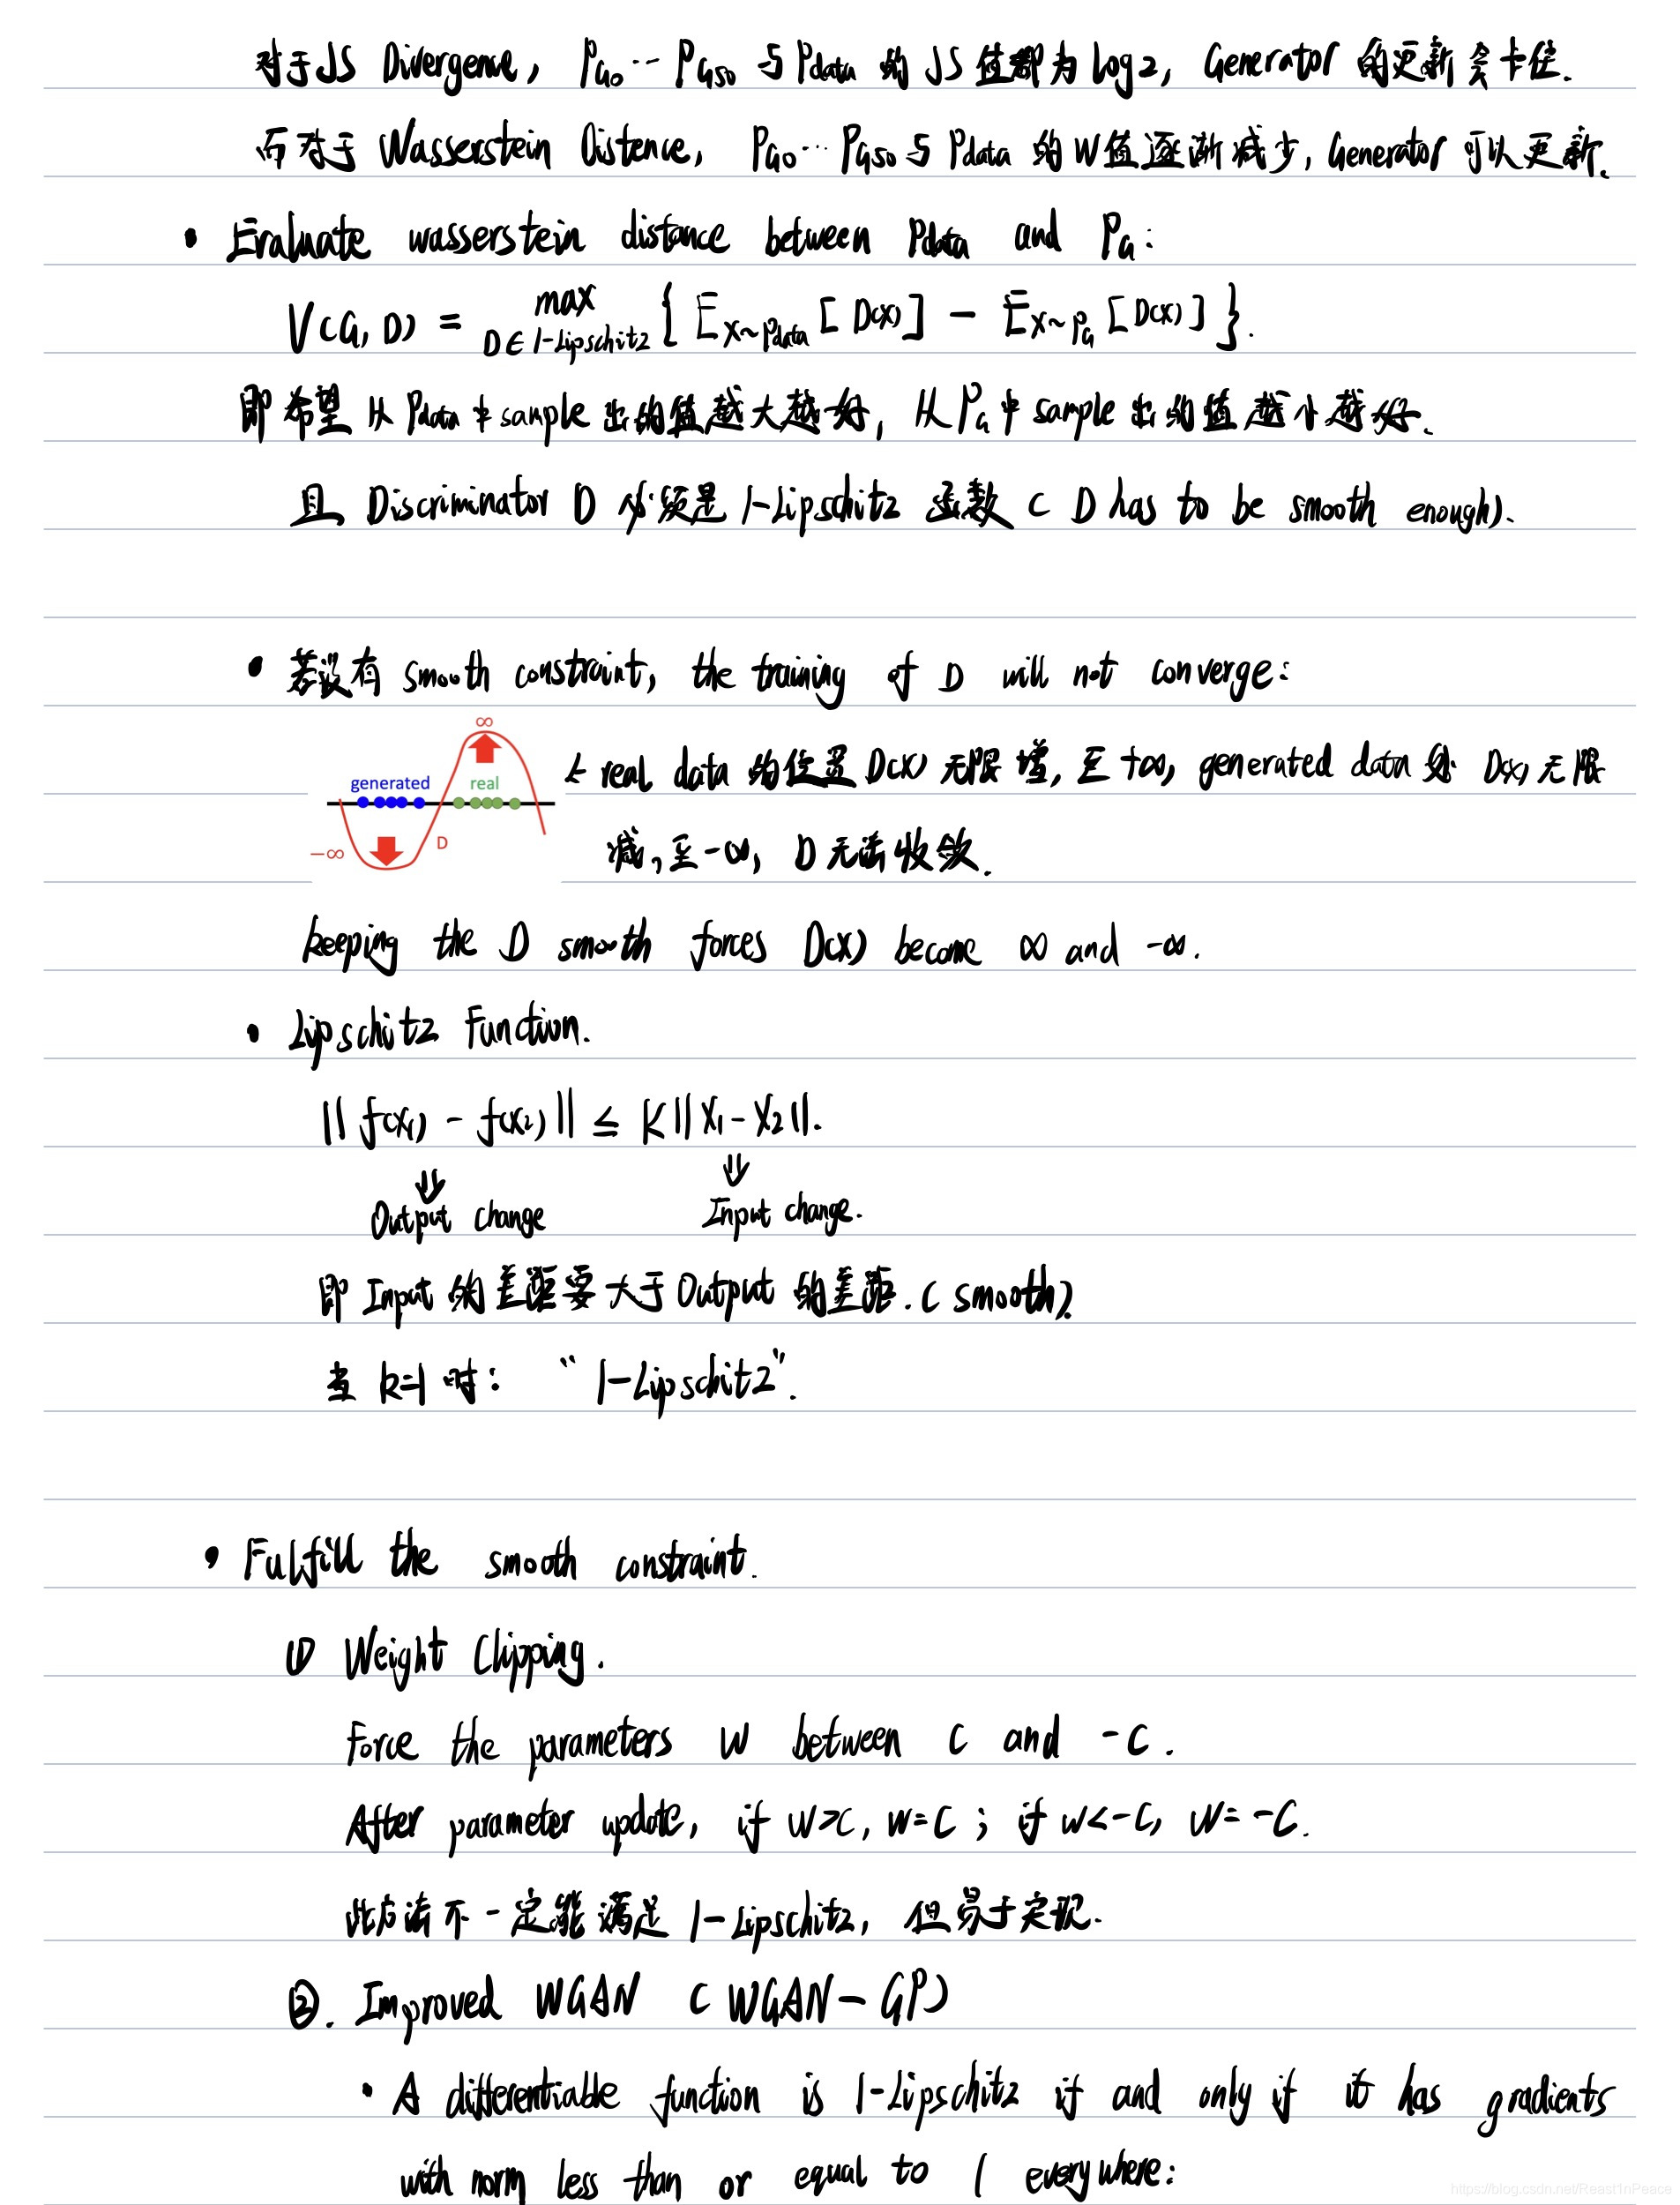 对于JS Divergence, PG0…PG50与Pdata的JS值都为log2, Generator的更新会卡住.
而对于Wasserstein Distence, PG0…PG50与Pdata的W值逐渐减少, Generator可以更新.
• Evaluate wasserstein distance between Pdata and PG:
V(G, D) = max D∈1-Lipschitz { E x~Pdata [D(x)] - E x~PG [D(x)] }.
即希望从Pdata中sample出的值越大越好, 从PG中sample出的值越小越好.
且Discriminator D必须是1-Lipschitz函数 ( D has to be smooth enough).
• 若没有smooth constraint, the training of D will not converge:
∞
generated real
D
-∞
← real data的位置D(x)无限增, 至+∞, generated data处D(x)无限
减, 至-∞, D无法收敛.
keeping the D smooth forces D(x) become ∞ and -∞.
• Lipschitz Function.
|| f(x1) - f(x2) || ≤ K || X1 - X2 ||.
⇓ ⇓
Output change Input change.
即Input的差距要大于Output的差距. ( smooth).
当k=1时: “1-Lipschitz”.
• Fulfill the smooth constraint.
① Weight Clipping.
Force the parameters w between c and -c.
After parameter update, if w>c, w=c ; if w<-c, w=-c.
此方法不一定能满足1-Lipschitz, 但易于实现.
②. Improved WGAN ( WGAN-GP)
• A differentiable function is 1-Lipschitz if and only if it has gradients
with norm less than or equal to 1 everywhere:
https://blog.csdn.net/Reast1nPeace